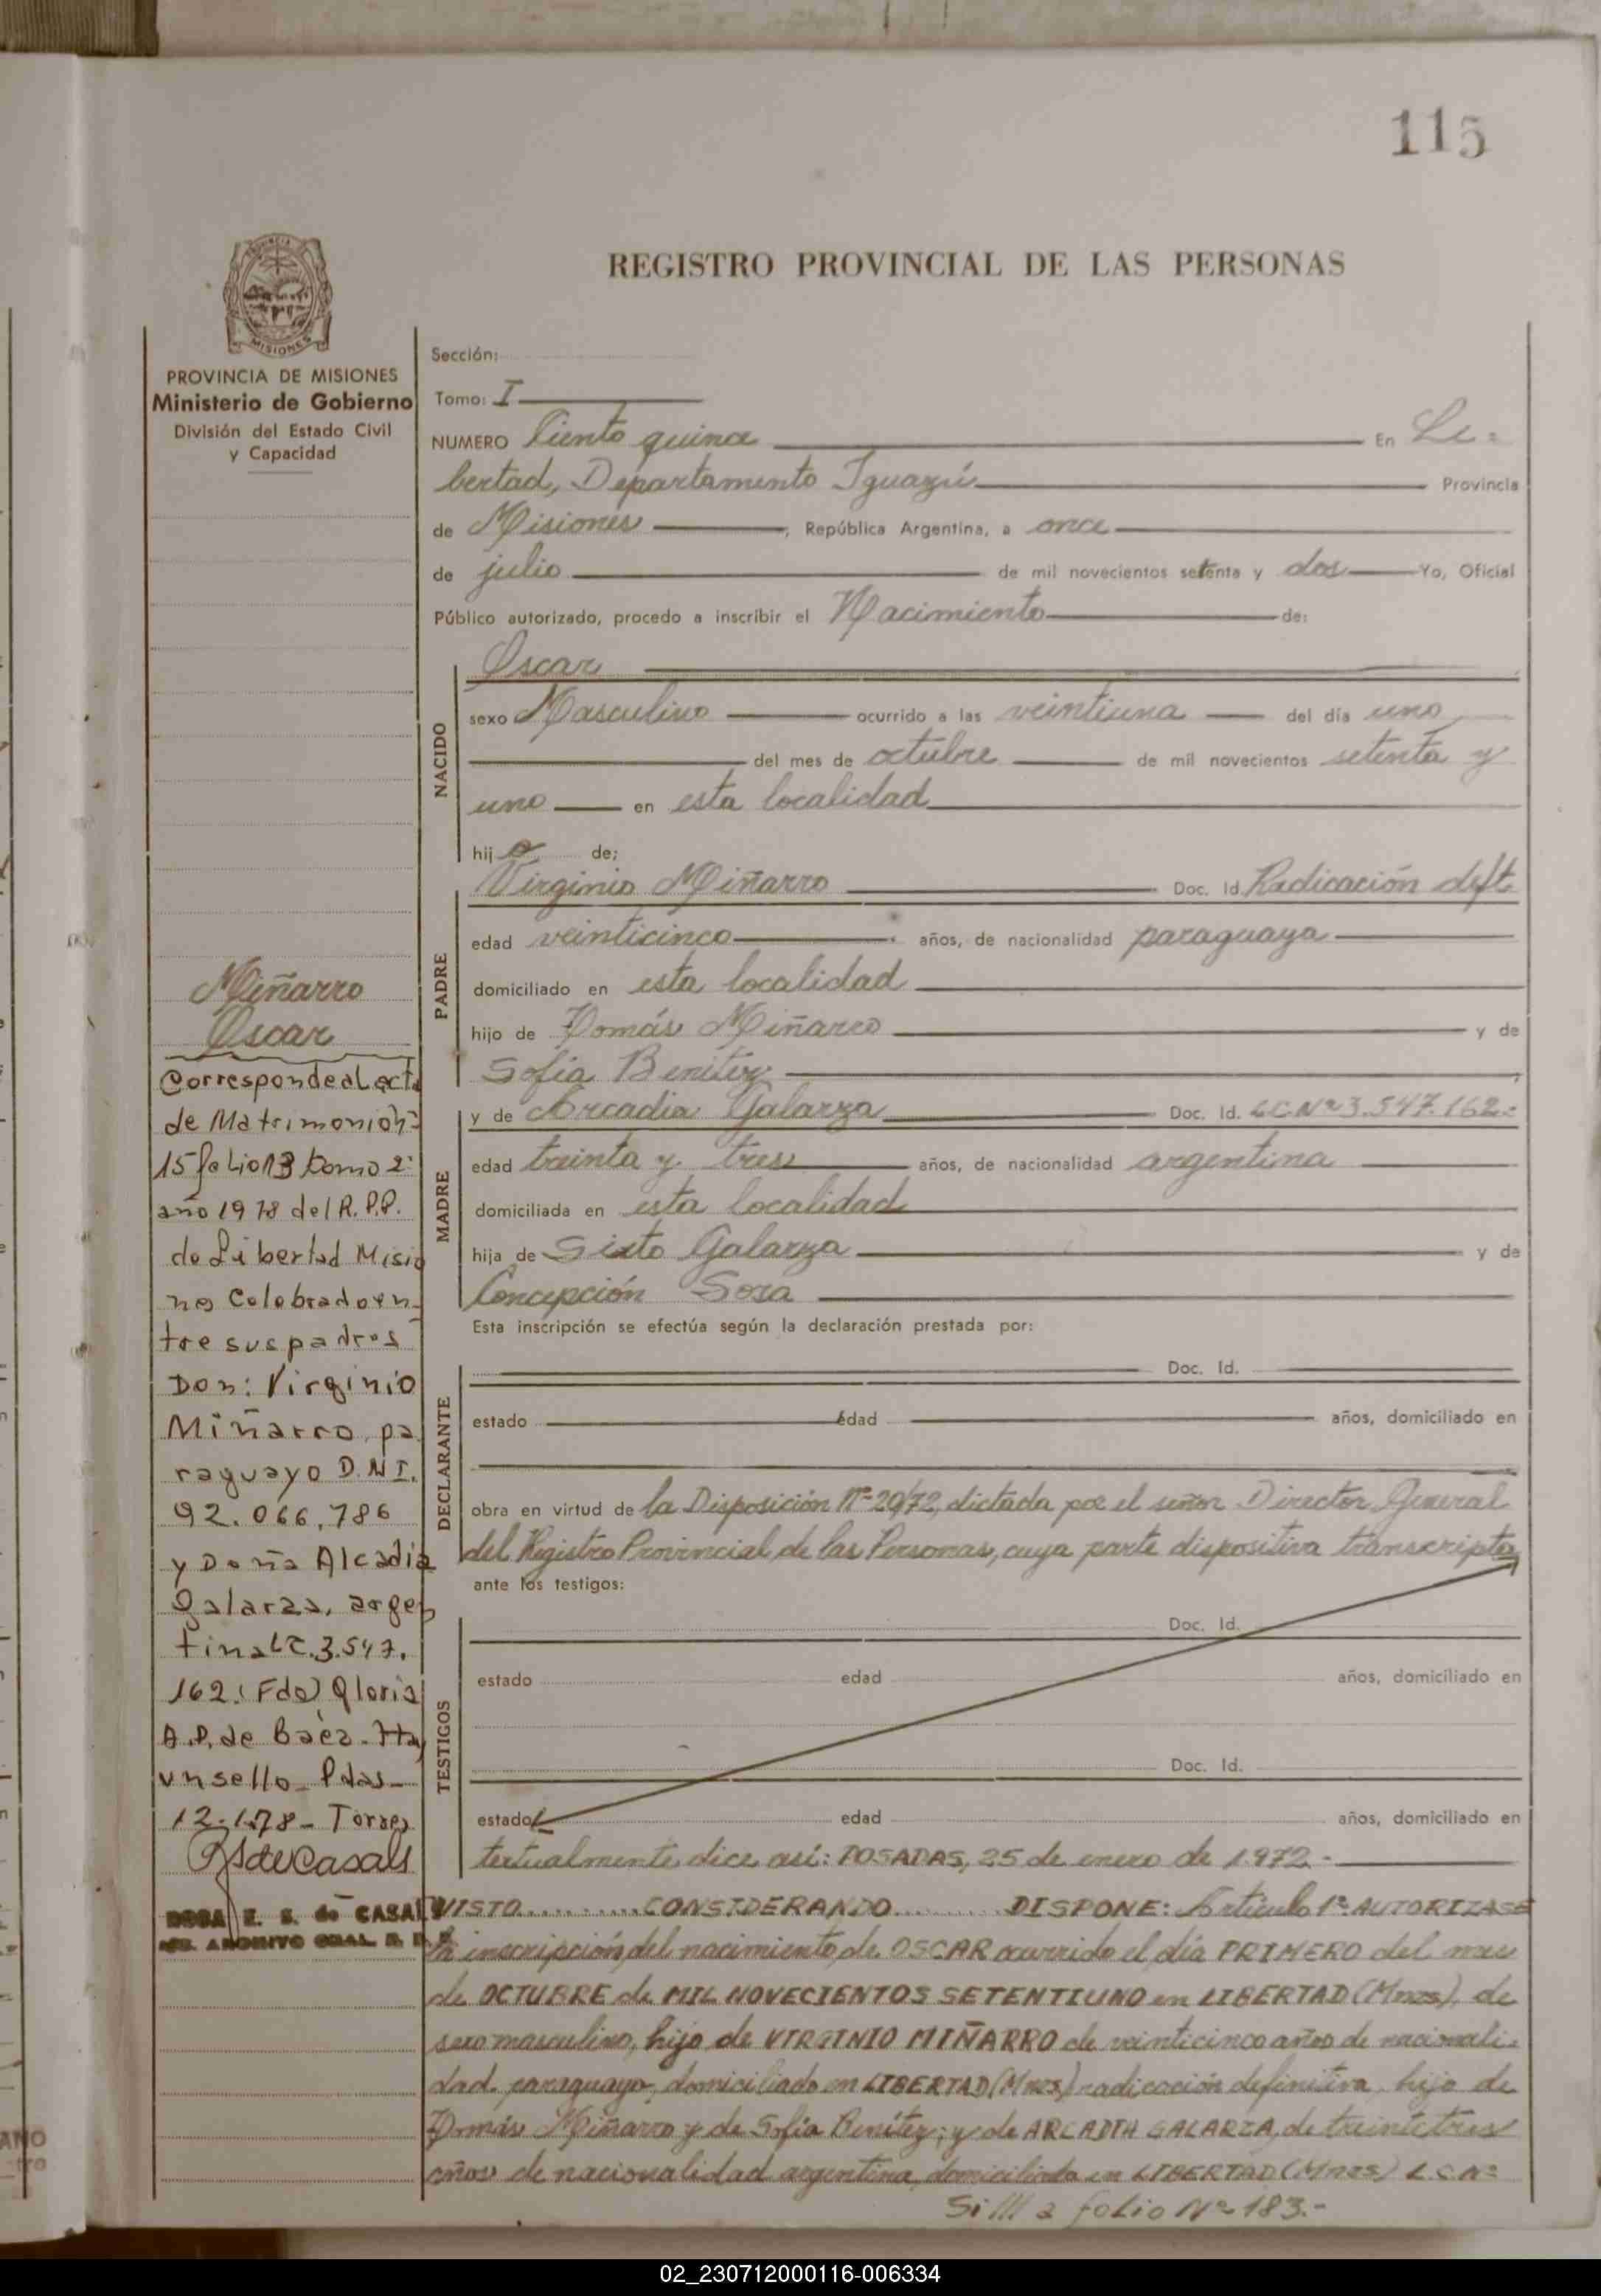 115
REGISTRO PROVINCIAL DE LAS PERSONAS
PROVINCIA DE MISIONES
Ministerio de Gobierno
División del Estado Civil
y Capacidad
Sección:
Tomo: I
NUMERO Ciento quince En Li=
bertad, Departamento Iguazú Provincia
de Misiones, República Argentina, a once
de julio de mil novecientos setenta y dos Yo, Oficial
Público autorizado, procedo a inscribir el Nacimiento de:
NACIDO
Oscar
sexo Masculino ocurrido a las veintiuna del día uno
del mes de octubre de mil novecientos setenta y
uno en esta localidad
hijo de;
PADRE
Virginio Miñarro Doc. Id. Radicación deft.
edad veinticinco años, de nacionalidad paraguaya
domiciliado en esta localidad
hijo de Tomás Miñarro y de
Sofía Benítez
MADRE
y de Arcadia Galarza Doc. Id. L.C.Nº 3.547.162.=
edad treinta y tres años, de nacionalidad argentina
domiciliada en esta localidad
hija de Sixto Galarza y de
Concepción Sosa
Esta inscripción se efectúa según la declaración prestada por:
DECLARANTE
Doc. Id.
estado edad años, domiciliado en
obra en virtud de la Disposición Nº 20/72, dictada por el señor Director General
del Registro Provincial de las Personas, cuya parte dispositiva transcripta
ante los testigos:
TESTIGOS
Doc. Id.
estado edad años, domiciliado en
Doc. Id.
estado edad años, domiciliado en
textualmente dice así: POSADAS, 25 de enero de 1972.-
VISTO..........CONSIDERANDO.........DISPONE: Artículo 1º AUTORIZASE
la inscripción del nacimiento de OSCAR ocurrido el día PRIMERO del mes
de OCTUBRE de MIL NOVECIENTOS SETENTIUNO en LIBERTAD (Mnes), de
sexo masculino, hijo de VIRGINIO MIÑARRO de veinticinco años de nacionali=
dad paraguayo, domiciliado en LIBERTAD (Mnes) radicación definitiva, hijo de
Tomás Miñarro y de Sofía Benítez; y de ARCADIA GALARZA, de treintetres
años de nacionalidad argentina, domiciliada en LIBERTAD (Mnes) L.C.Nº
folio Nº 183.-
Miñarro
Oscar
Corresponde al acta
de Matrimonio nº
15 folio 13 tomo 2º
año 1978 del R.P.P.
de Libertad Misio
nes Celebrado en-
tre sus padres
Don: Virginio
Miñarro, pa
raguayo D.N.I.
92.066.786
y Doña Alcadia
Galarza, argen
tina LC.3.547.
162. (Fdo) Gloria
A.P. de Baéz. Hay
un sello_ Pdas_
12-1-78_ Torres
RSdeCasals
ROSA E. S. de CASALS
02_230712000116-006334